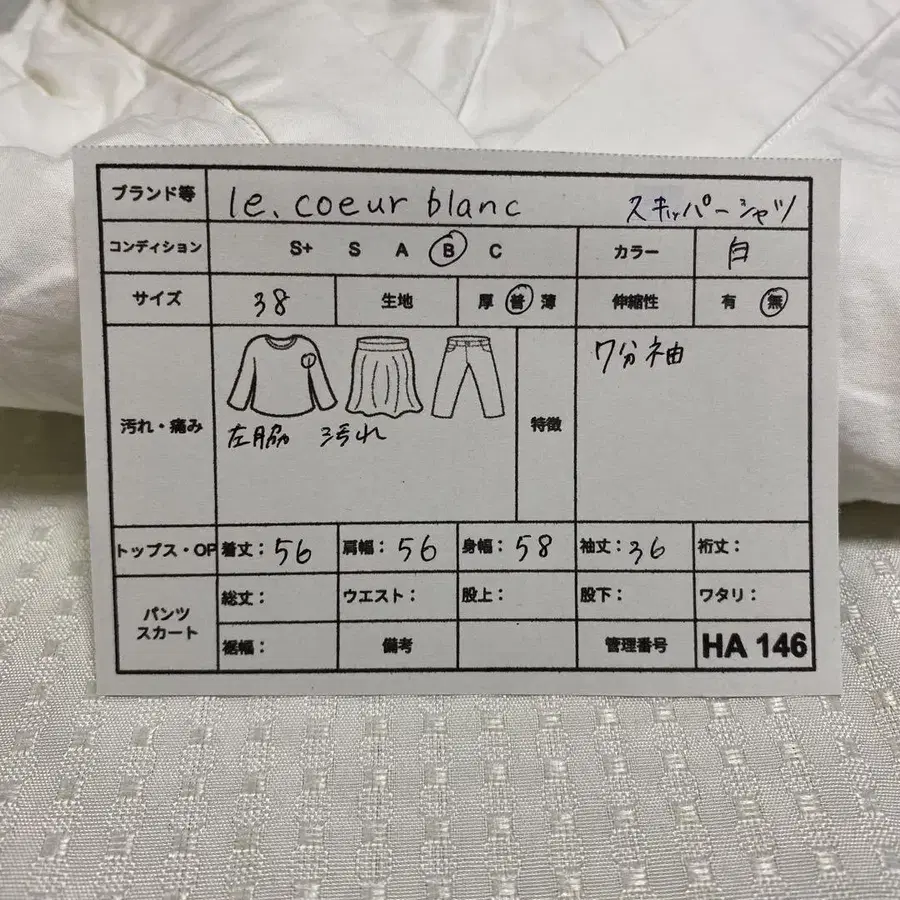 ブランド等 le.coeur blanc スキッパーシャツ
コンディション S+ S A B C カラー 白
サイズ 38 生地 厚 普 薄 伸縮性 有 無
汚れ・痛み 左脇 汚れ 特徴 7分袖
トップス・OP 着丈：56 肩幅：56 身幅：58 袖丈：36 裄丈：
パンツ スカート 総丈： ウエスト： 股上： 股下： ワタリ：
裾幅： 備考 管理番号 HA 146